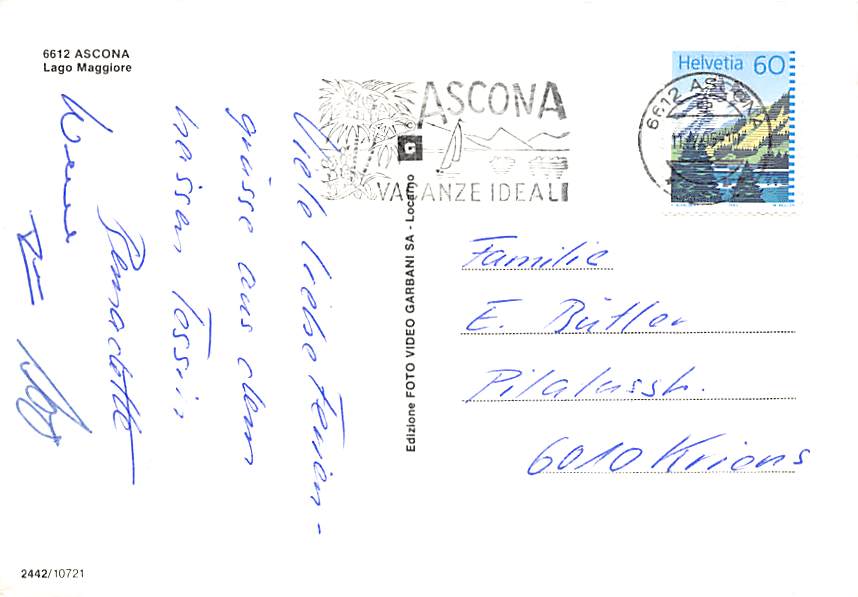 6612 ASCONA
Lago Maggiore
Viele liebe Ferien-
grüsse aus dem
nassen Tessin
Bernadette
Edizione FOTO VIDEO GARBANI SA - Locarno
G
ASCONA
VACANZE IDEALI
Helvetia 60
6612 ASCONA
Familie
E. Bütler
Pilatusstr.
6010 Kriens
2442/10721